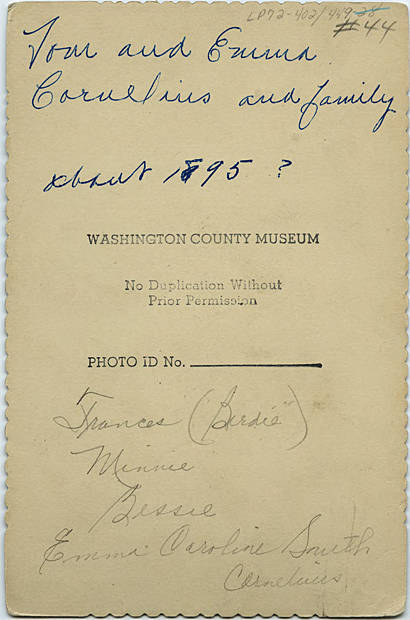 LP72-402/489-28
#44
Tom and Emma
Cornelius and family
about 1895 ?
WASHINGTON COUNTY MUSEUM
No Duplication Without
Prior Permission
PHOTO ID No.
Frances ("Birdie")
Minnie
Bessie
Emma Caroline Smith
Cornelius